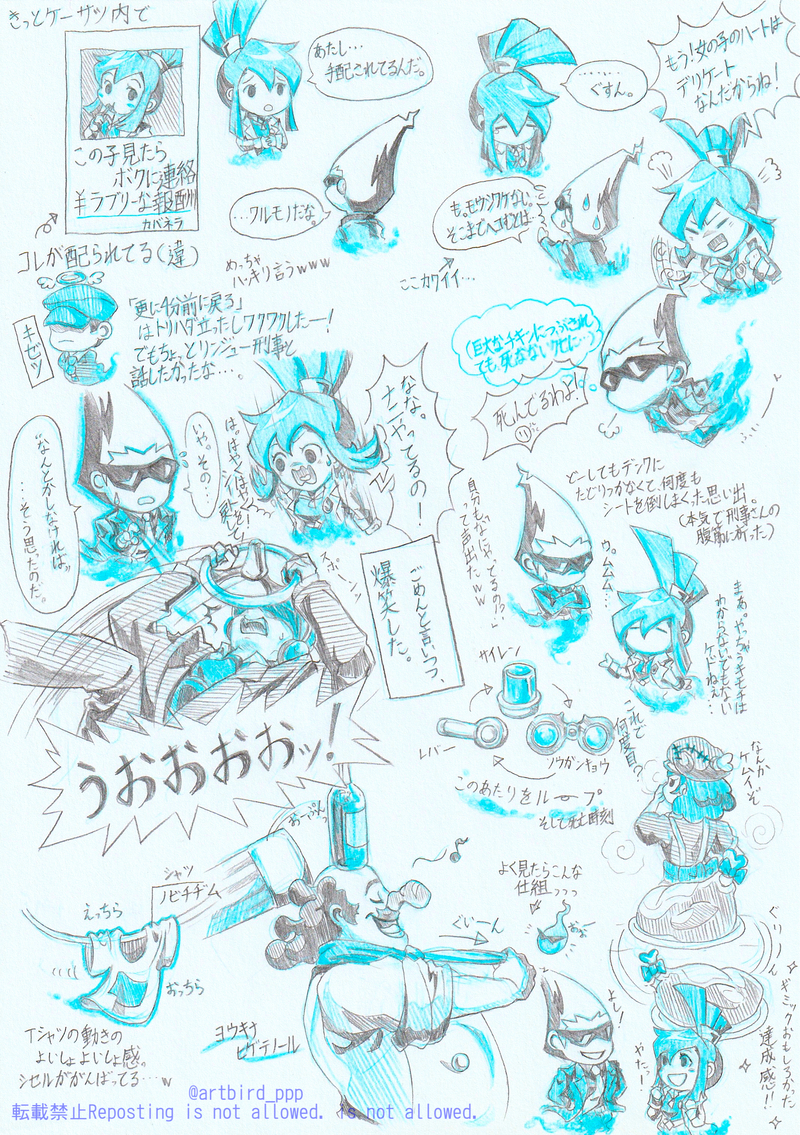 きっとケーサツ内で
この子見たら
ボクに連絡
¥ラブリーな報酬
カバネラ
コレが配られてる(違)
あたし…
手配されてるんだ。
…ワルモノだな。
めっちゃ
ハッキリ言うwww
………
ぐすん。
も。モウシワケない。
そこまでヘコむとは…
ここカワイイ…
もう!女の子のハートは
デリケート
なんだからね!
キゼツ
「更に4分前に戻る」
はトリハダ立ったしワクワクしたー!
でもちょっとリンジュー刑事と
話したかったな…。
(巨大なチキンにつぶされ
ても、死なないクセに…)
死んでるわよ!
なな。
ナニやってるの!
はやくはやく
いや。その…
"なんとかしなければ"
…そう思ったのだ。
スポーン
ごめんと言いつつ、
爆笑した。
うおおおおッ!
自分もなにやってるの!?
って声出たww
どーしてもデンクに
たどりつかなくて、何度も
シートを倒しまくった思い出。
(本気で刑事さんの
腹筋に祈った)
ウ。ムムム…
まあ。やっちゃうキモチは
わからないでもない
ケドねえ…
サイレン
レバー
ソウガンキョウ
このあたりをループ
そして死亡時刻
これで
何度目?
なんか
ケムイぞ
シャツ
ノビチヂム
えっちら
おっちら
Tシャツの動きの
よいしょよいしょ感。
シセルががんばってる…w
ぐいーん
ヨウキナ
ヒゲテノール
よく見たらこんな
仕組っっっ
よし!
やたっ!
ぐりーん
ギミックおもしろかった
達成感!!
@artbird_ppp
転載禁止Reposting is not allowed. is not allowed.